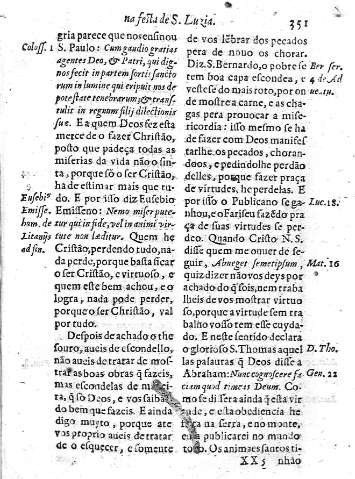 na festa de S. Luzia.
351
gria parece que nos ensinou
Coloss. 1
S. Paulo: Cum gaudio gratias
agentes Deo, & Patri, qui dig-
nos fecit in partem sortis sancto
rum in lumine qui eripuit nos de
potestate tenebrarum, & trans-
tulit in regnum filij dilectionis
suæ. E a quem Deos fez esta
merce de o fazer Christão,
posto que padeça todas as
miserias da vida não o sin-
ta, porque só o ser Christão,
ha de estimar mais que tu-
Eusebi
do. E por isso diz Eusebio
Emisse.
Emisseno: Nemo miser putet
ham. de
tur qui in fide, vel in animi vir-
Litanijs
tute non læditur. Quem he
ad fin.
Christão, perdendo tudo, na-
da perde, porque basta ficar
o ser Cristão, e virtuoso, e
quem este bem achou, e o
logra, nada pode perder,
porque o ser Christão, val
por tudo.
Despois de achado o the
souro, aueis de escondello,
não aueis de tratar de mos-
trar as boas obras q̃ fazeis,
mas escondelas de
ra, q̃ só Deos, e vos saiba
do bem que fazeis. E ainda
digo muyto, porque ate
vos proprio aueis de tratar
de o esquecer, e somente
de vos lẽbrar dos pecados
pera de nouo os chorar.
Diz S. Bernardo, o pobre se
Ber ser.
tem boa capa escondea, e
4 de Ad
veste se do mais roto, por on
uẽtu.
de mostre a carne, e as cha-
gas pera prouocar a mise-
ricordia: isso mesmo se ha
de fazer com Deos manifes
tarlhe os pecados, choran-
deos, e pedindolhe perdão
delles, porque fazer praça
de virtudes, he perdelas. E
por isso o Publicano se ga-
Luc. 18.
nhou, e o Fariseu fazẽdo pra
ça de suas virtudes se per-
deo. Quando Cristo N. S.
disse quem me ouuer de se-
guir, Abneget semetipsum,
Mat. 16
quiz dizer não vos deys por
achado do q̃ sois, nem traba
lheis de vos mostrar virtuo
so, porque a virtude sem tra
balho vosso tem esse cuyda-
do. E neste sentido declara
o glorioso S. Thomas aquel
D. Tho.
las palauras q̃ Deos disse a
Abraham: Nunc cognoscere fe
Gen. 22
ci tam quod timeas Deum. Co-
mo se disera ainda q̃ esta vir
tude, e esta obediencia he
feyta na serra, e no monte,
eu a publicarei no mundo
todo. Os animaes santos ti-
XX 5
nhão